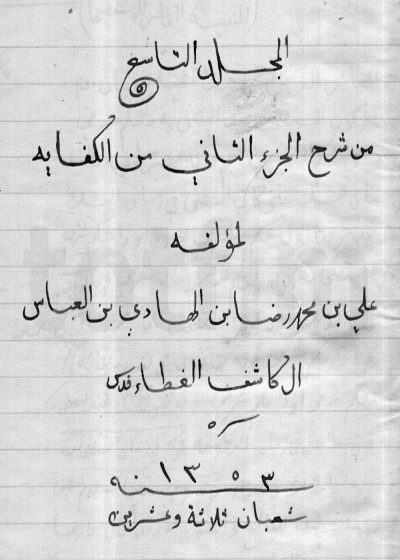 المجلد التاسع
من شرح الجزء الثاني من الكفايه
لمؤلفه
علي بن محمدرضا بن الهادي بن العباس
ال كاشف الغطاء قدس
سره
سنه ١٣٥٣
شعبان ثلاثة وعشرين